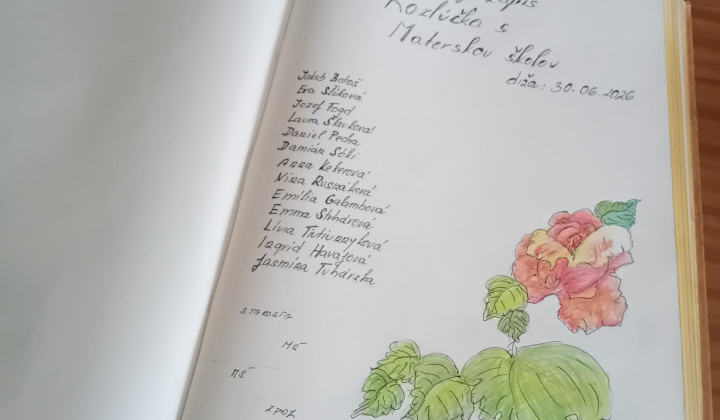 Rozlúčka s
Materskou školou
dňa: 30.06.2026
Jakub Botoš
Eva Slíková
Jozef Fogd
Laura Šlauková
Daniel Pecha
Damián Sóki
Anna Kekerová
Nina Rusnáková
Emília Galambová
Emma Stnhárová
Lívia
Ingrid Havajová
Jasmína Tuhárska
STAROSTA
MŠ
ZPOZ